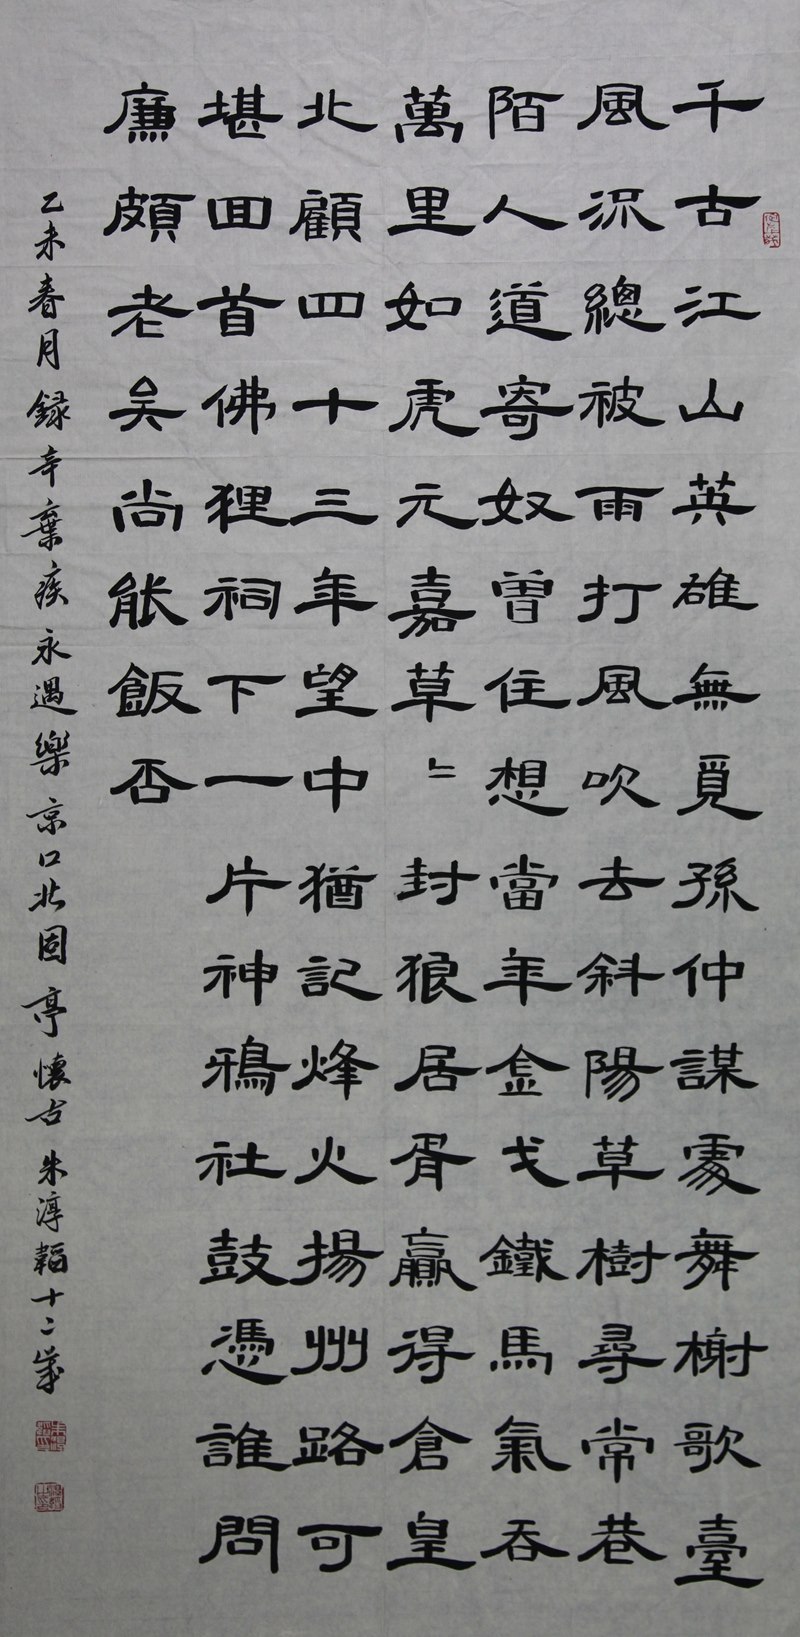 千古江山英雄無覓孫仲謀處舞榭歌臺
風流總被雨打風吹去斜陽草樹尋常巷
陌人道寄奴曾住想當年金戈鐵馬氣吞
萬里如虎元嘉草〻封狼居胥贏得倉皇
北顧四十三年望中猶記烽火揚州路可
堪回首佛狸祠下一片神鴉社鼓憑誰問
廉頗老矣尚能飯否
乙未春月録辛棄疾永遇樂京口北固亭懷古朱淳韜十二歲